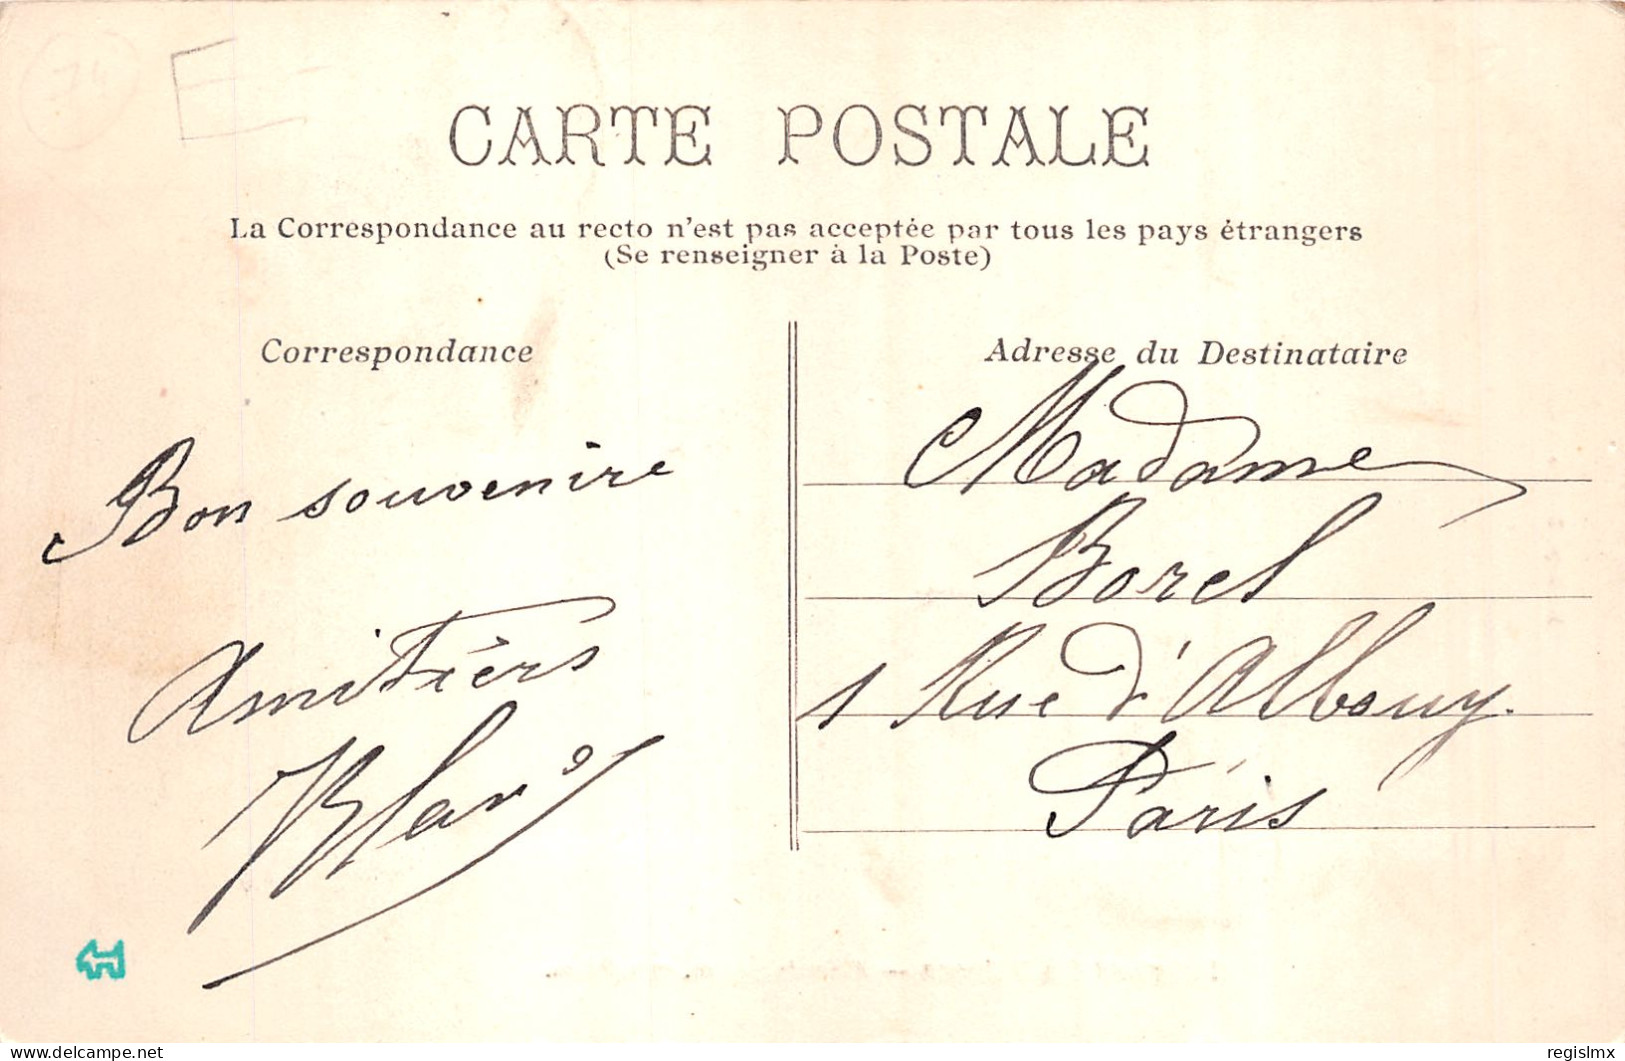 74
CARTE POSTALE
La Correspondance au recto n'est pas acceptée par tous les pays étrangers
(Se renseigner à la Poste)
Correspondance
Bon souvenire
Amitiérs
Adresse du Destinataire
Madame
Borel
1 Rue d'Albouy.
Paris
delcampe.net
regislmx